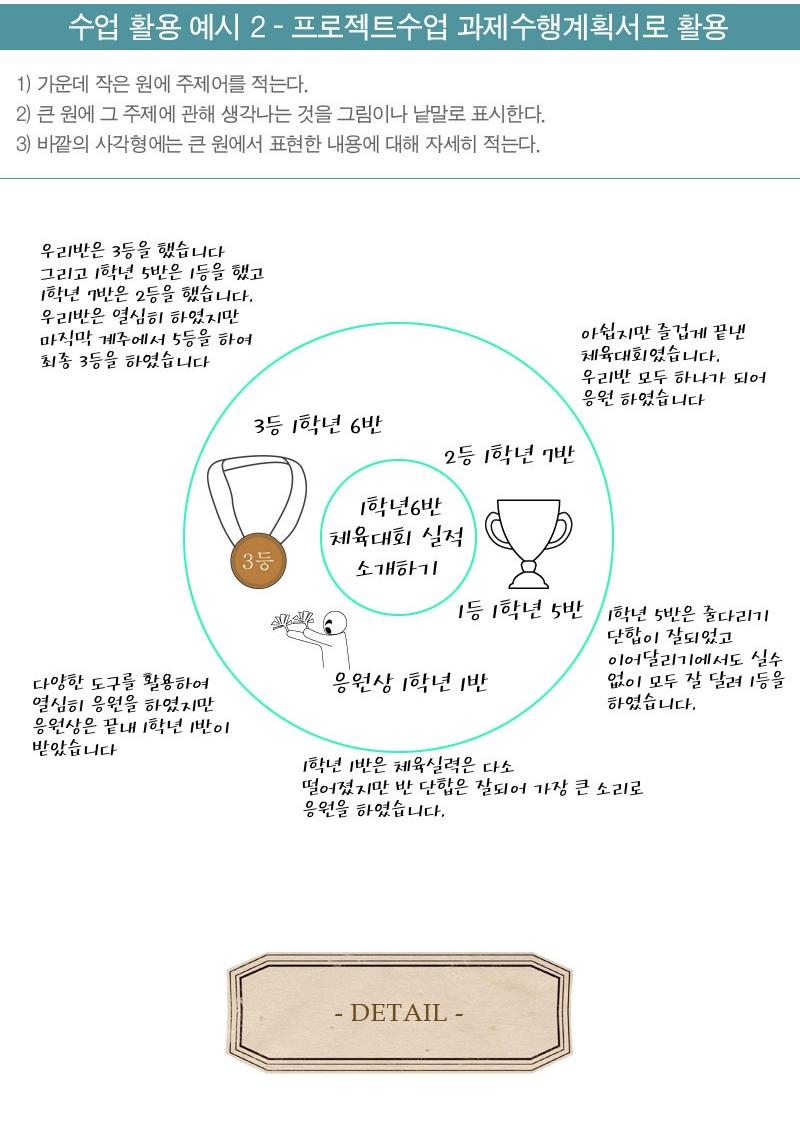 수업 활용 예시 2 - 프로젝트수업 과제수행계획서로 활용
1) 가운데 작은 원에 주제어를 적는다.
2) 큰 원에 그 주제에 관해 생각나는 것을 그림이나 낱말로 표시한다.
3) 바깥의 사각형에는 큰 원에서 표현한 내용에 대해 자세히 적는다.
우리반은 3등을 했습니다
그리고 1학년 5반은 1등을 했고
1학년 7반은 2등을 했습니다.
우리반은 열심히 하였지만
마직막 계주에서 5등을 하여
최종 3등을 하였습니다
아쉽지만 즐겁게 끝낸
체육대회였습니다.
우리반 모두 하나가 되어
응원 하였습니다
3등 1학년 6반
2등 1학년 7반
1학년6반
체육대회 실적
소개하기
3등
1등 1학년 5반
1학년 5반은 줄다리기
단합이 잘되었고
이어달리기에서도 실수
없이 모두 잘 달려 1등을
하였습니다.
응원상 1학년 1반
다양한 도구를 활용하여
열심히 응원을 하였지만
응원상은 끝내 1학년 1반이
받았습니다
1학년 1반은 체육실력은 다소
떨어졌지만 반 단합은 잘되어 가장 큰 소리로
응원을 하였습니다.
- DETAIL -